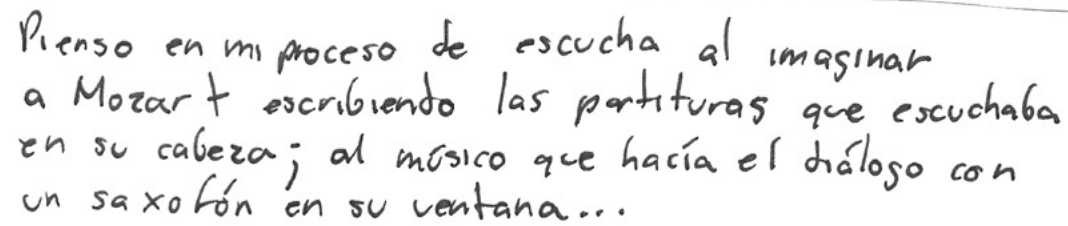 Pienso en mi proceso de escucha al imaginar
a Mozart escribiendo las partituras que escuchaba
en su cabeza; al músico que hacía el diálogo con
un saxofón en su ventana...